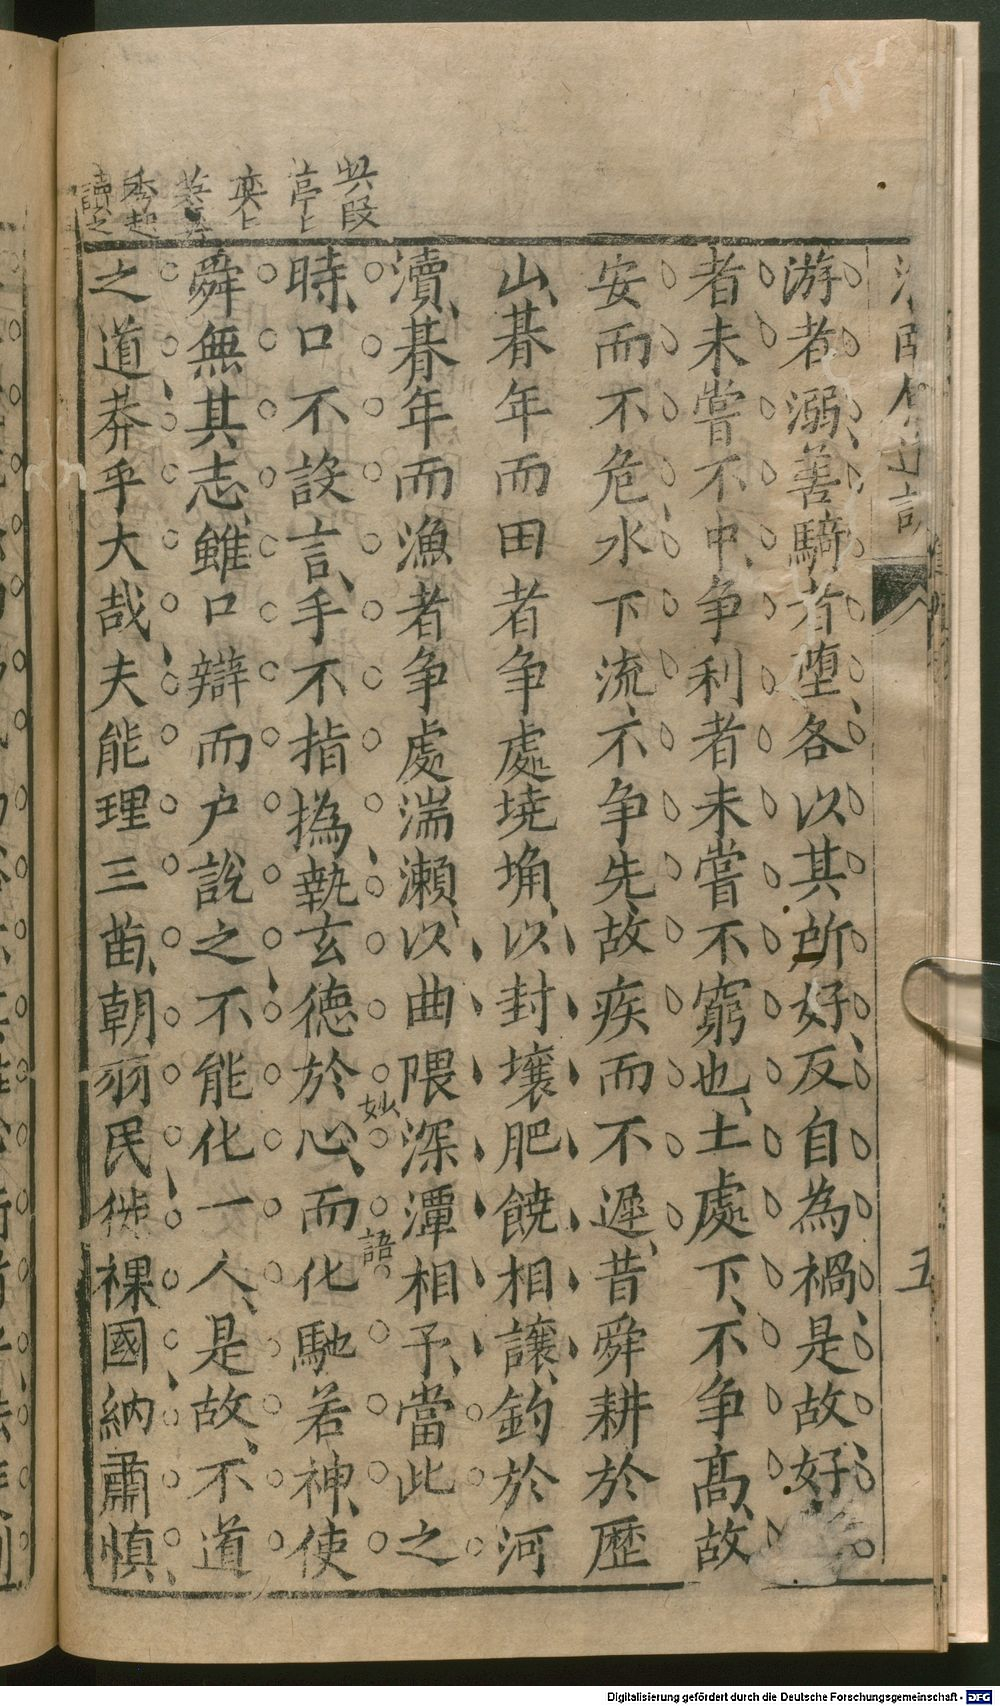 游者溺善騎者墮各以其所好反自為禍是故好
者未嘗不中争利者未嘗不窮也土處下不争高故
安而不危水下流不争先故疾而不遲昔舜耕於歷
山朞年而田者争處墝埆以封壤肥饒相讓釣於河
瀆朞年而漁者争處湍瀨以曲隈深潭相予當此之
時口不設言手不指撝執玄德於心而化馳若神使
妙語
舜無其志雖口辯而户說之不能化一人是故不道
之道莽乎大哉夫能理三苗朝羽民徙裸國納肅慎
五
Digitalisierung gefördert durch die Deutsche Forschungsgemeinschaft - DFG